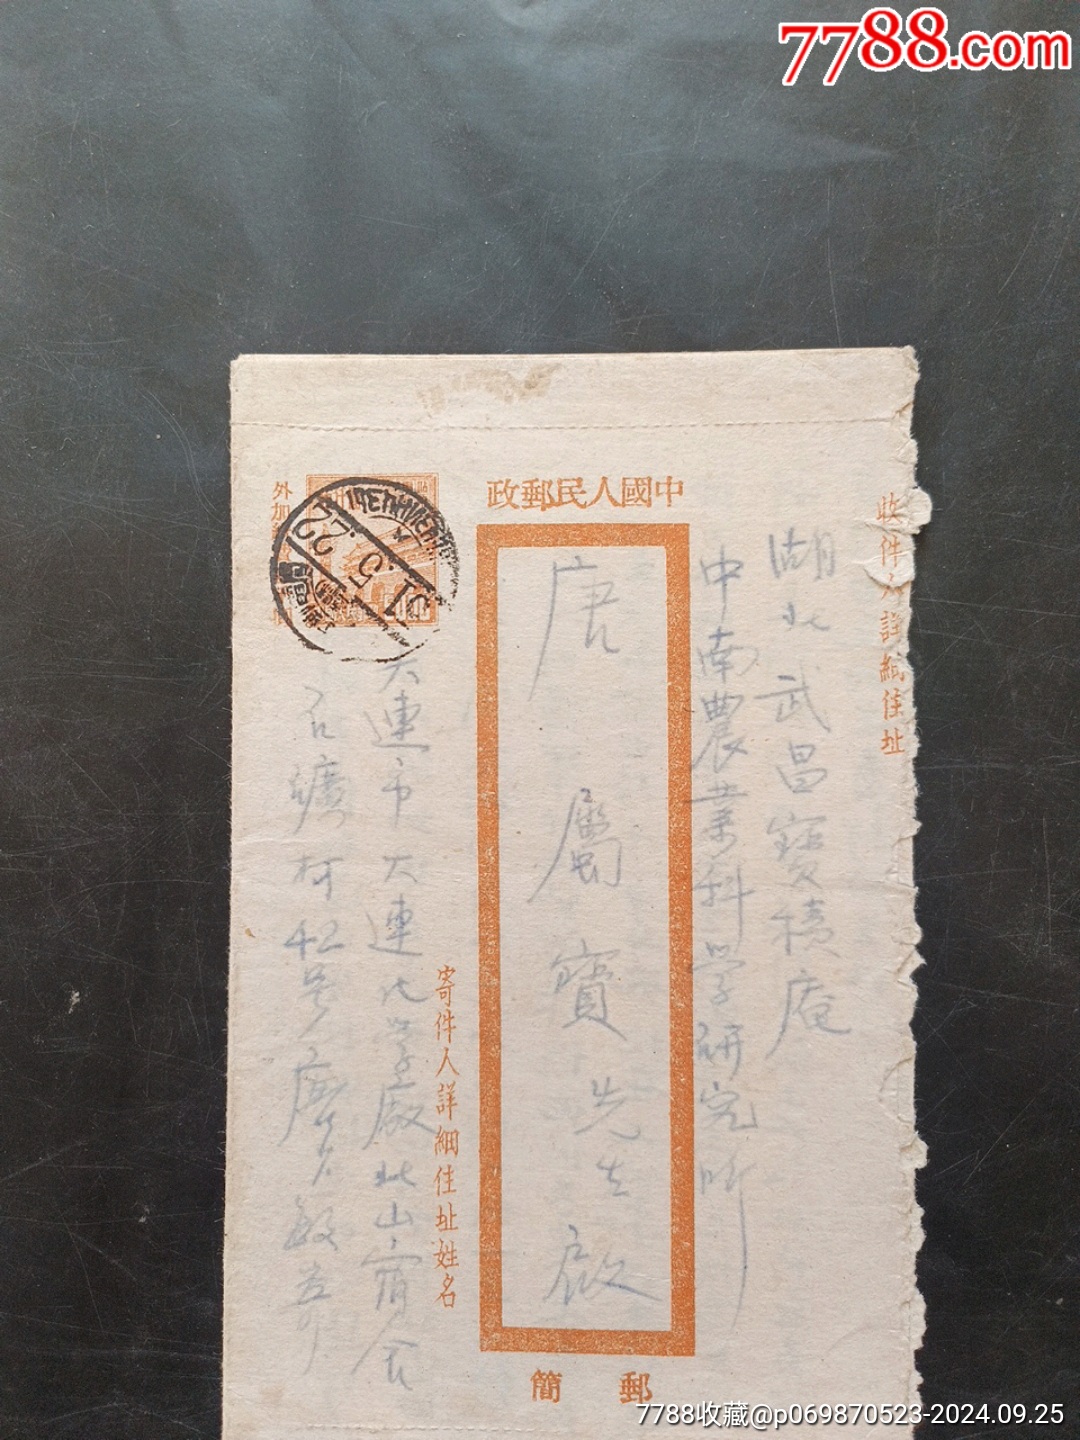 7788.com
中國人民郵政
收件人詳細住址
湖北武昌寶積庵
中南農業科学研究所
唐屬寶先生啟
寄件人詳細住址姓名
大連市大連化学廠北山宿舍
42号
郵簡
外加
51.5.22
7788收藏@p069870523-2024.09.25